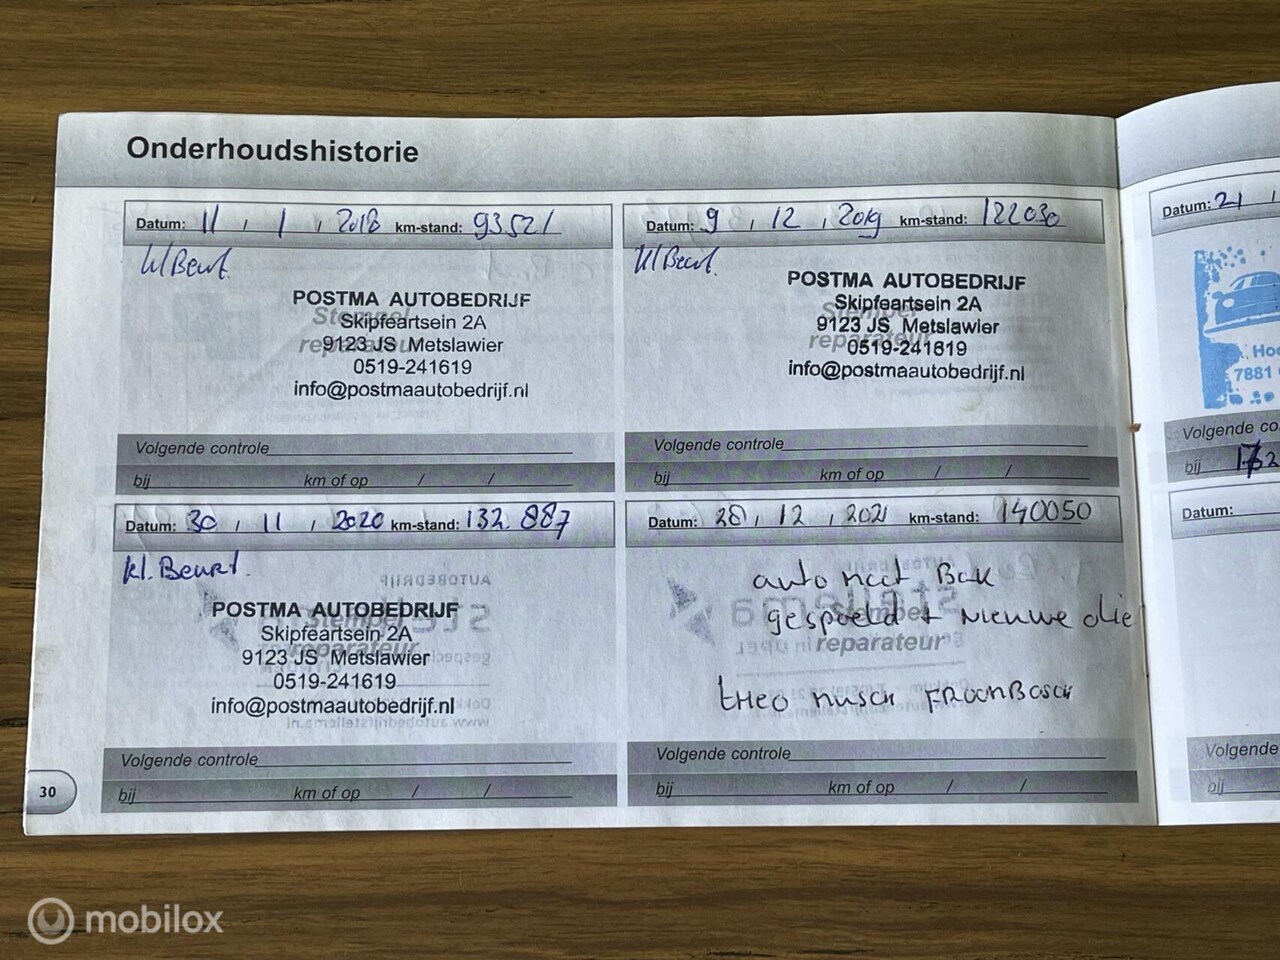 Onderhoudshistorie
Datum: 11 / 1 / 2018 km-stand: 93521
kl Beurt.
POSTMA AUTOBEDRIJF
Skipfeartsein 2A
9123 JS Metslawier
0519-241619
info@postmaautobedrijf.nl
Stempel
reparateur
Volgende controle
bij km of op / /
Datum: 9 / 12 / 2019 km-stand: 122030
kl Beurt.
POSTMA AUTOBEDRIJF
Skipfeartsein 2A
9123 JS Metslawier
0519-241619
info@postmaautobedrijf.nl
Stempel
reparateur
Volgende controle
bij km of op / /
Datum: 30 / 11 / 2020 km-stand: 132.887
kl. Beurt.
POSTMA AUTOBEDRIJF
Skipfeartsein 2A
9123 JS Metslawier
0519-241619
info@postmaautobedrijf.nl
Stempel
reparateur
Volgende controle
bij km of op / /
Datum: 28 / 12 / 2021 km-stand: 140050
automaat Bak
gespoeld + Nieuwe olie
Stempel
reparateur
Volgende controle
bij km of op / /
30
Datum: 21 /
7881
Volgende co
bij
Datum:
Volgende
bij
mobilox